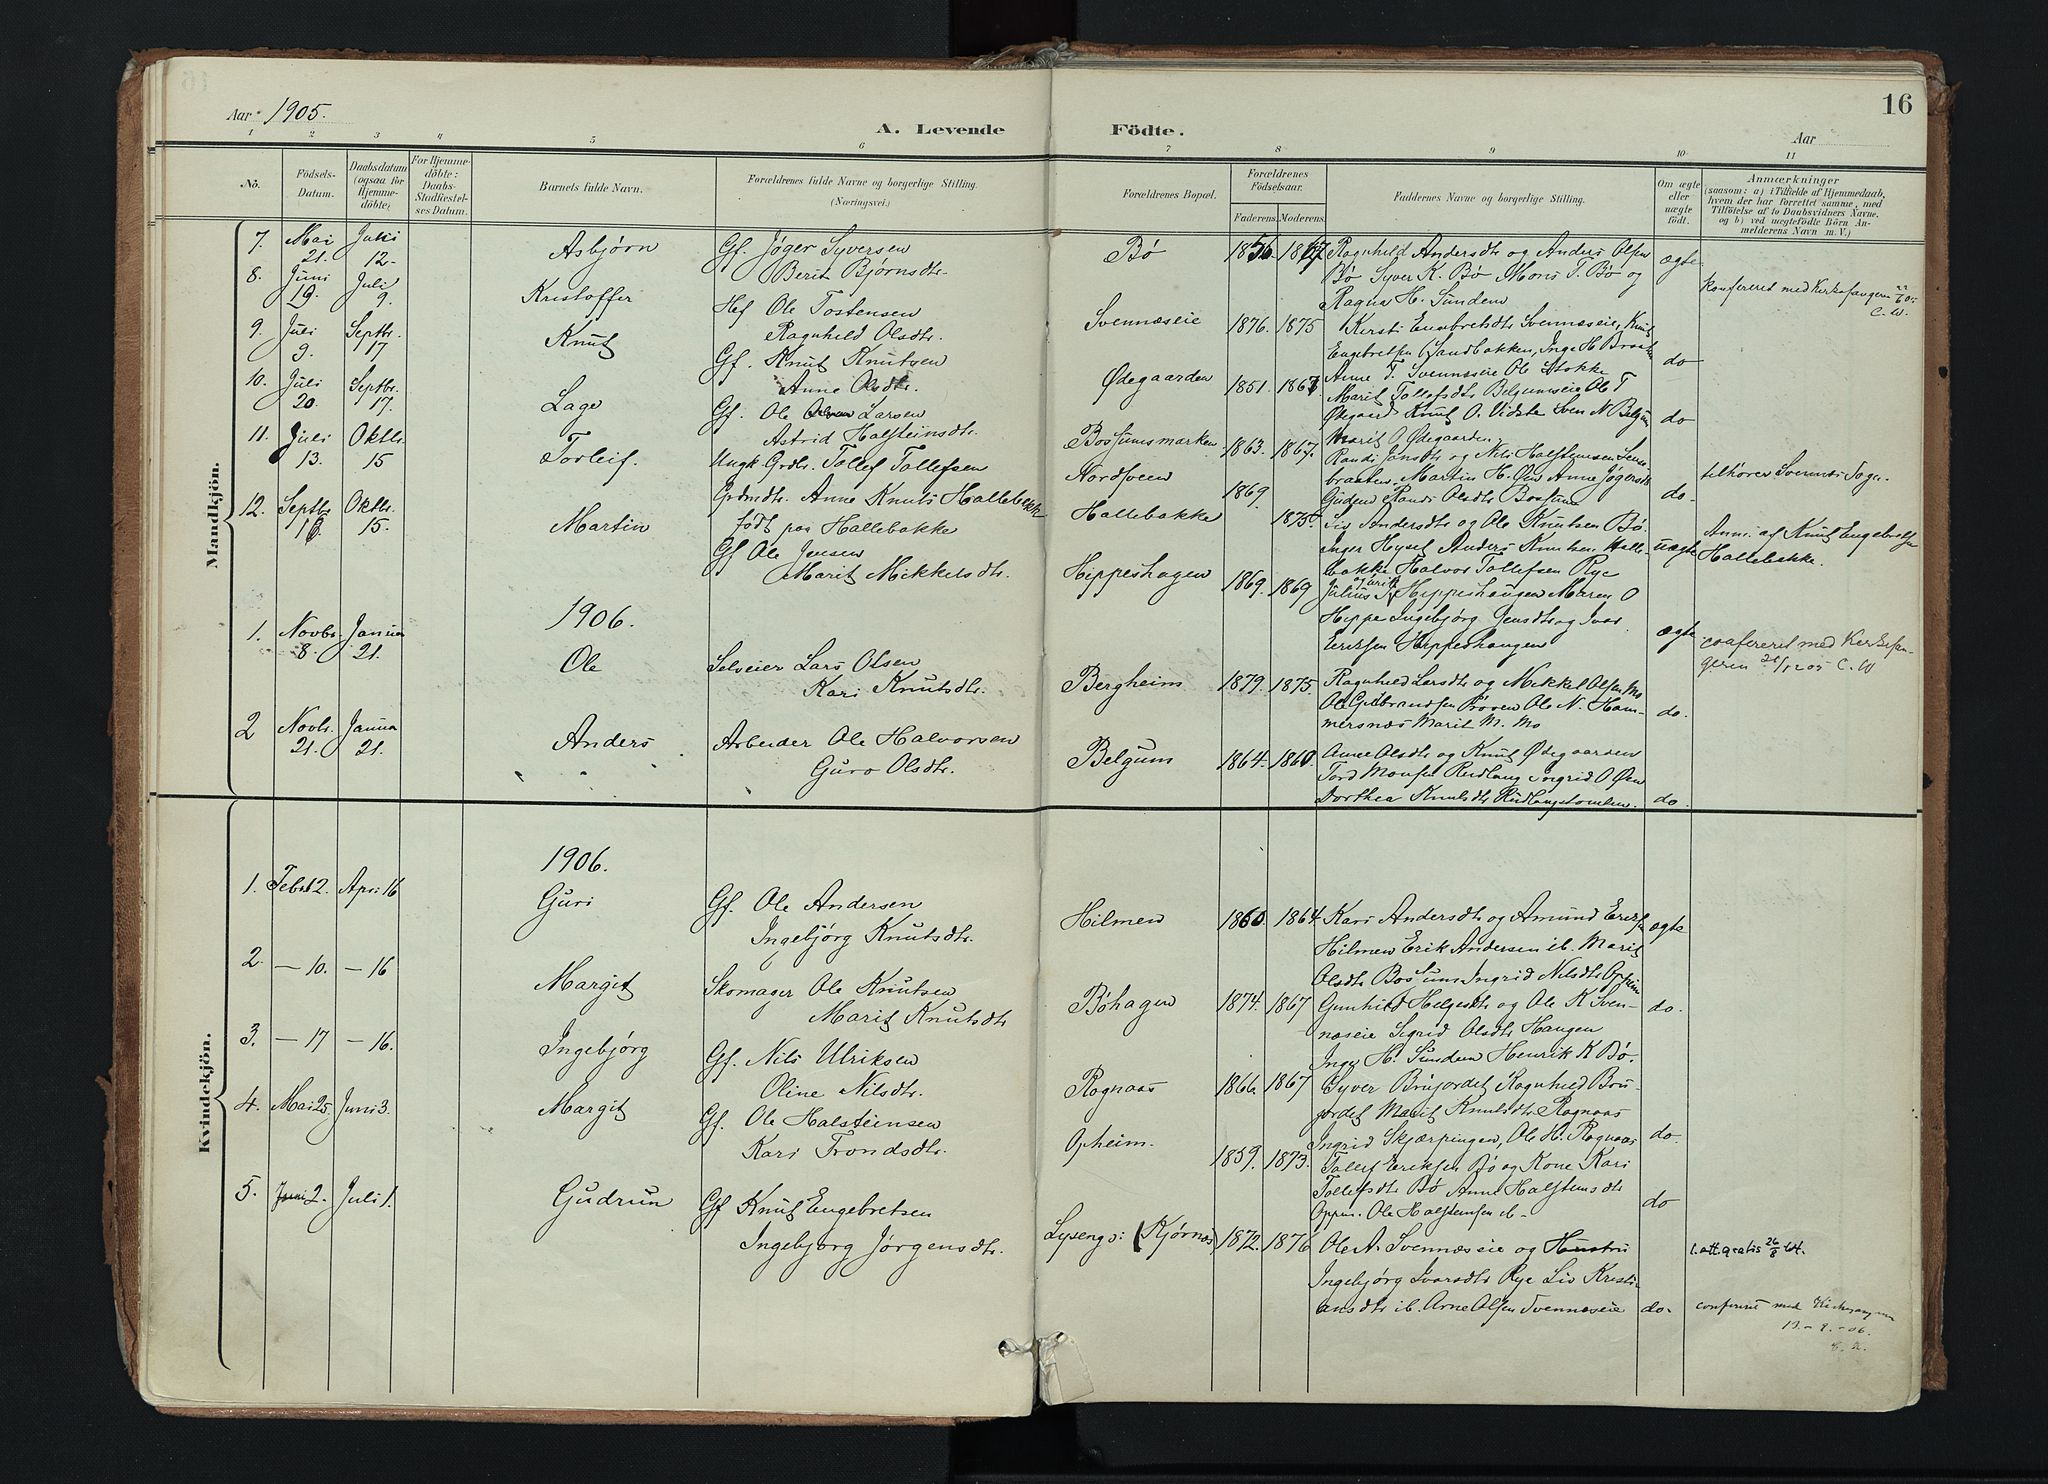 16
Aar 1905.
A. Levende Födte.
Aar
1 2 3 4 5 6 7 8 9 10 11
No.
Födsels-Datum.
Daabsdatum (ogsaa for Hjemme-döbte)
For Hjemme-döbte: Daabs-Stadfæstel-ses Datum.
Barnets fulde Navn.
Forældrenes fulde Navne og borgerlige Stilling. (Næringsvei.)
Forældrenes Bopæl.
Forældrenes Födselsaar.
Faderens. Moderens.
Faddernes Navne og borgerlige Stilling.
Om ægte eller uægte födt.
Anmærkninger
(saasom: a) i Tilfælde af Hjemmedaab, hvem der har forrettet samme, med Tilföielse af to Daabsvidners Navne, og b) ved uægtefödte Börn An-melderens Navn m. V.)
Mandkjön.
7. Mai 21. Juli 12. Asbjørn Gf. Jøger Syversen
Berit Bjørnsdtr. Bø 1856 1867 Ragnhild Andersdtr og Anders Olsen
Bø Syver K. Bø Mons T. Bø og
Ragna H. Sundem ægte
8. Juni 19. Juli 9. Kristoffer Hef Ole Tostensen
Ragnhild Olsdtr. Svennæseie 1876. 1875 Kersti Svennæseie, Knut
Engebretsen Sandbakken, Inge H. Braaten
Anne T. Svennæseie Ole Stokke do
konfereret med Kirkesangeren C.W.
9. Juli 9. Septbr. 17 Knut Gf. Knut Knutsen
Anne Olsdtr. Ødegaarden 1851. 1867. Marit Tollefsdtr Belgumseie Ole T
Ødegaard Knut O. Vidste Sven N Belgum
Marit O Ødegaarden. do
10. Juli 20. Septbr. 17. Lage Gf. Ole Larsen
Astrid Halsteinsdtr. Bossumsmarken 1863. 1867. Randi Jonsdtr og Nils Halstensen
Martin H. Anne
Randi Olsdtr Bossum do.
11. Juli 13. Oktbr. 15 Torleif. Ungk. Grdbr. Tollef Tollefsen
Grdmdtr. Anne Knuts Hallebakke
født paa Hallebakke Nordsveen Hallebakke 1869. 1875. Liv Andersdtr og Ole Knutsen Bø.
Inger Hyset Anders Knutsen Halle-
bakke Halvor Tollefsen Rye uægte
tilhører Svennes Sogn.
Anm. af Knut Engebretsen
Hallebakke.
12. Septbr. 16 Oktbr. 15. Martin Gf Ole Jensen
Marit Mikkelsdtr. Hippeshagen 1869. 1869 Julius Hippeshaugen Maren O
Hippe Ingebjørg Jensdtr og Ivar
Eriksen Hippeshaugen ægte
confereret med Kirkesan-
geren C. W
1906.
1. Novbr. 8. Janua 21. Ole Selveier Lars Olsen
Kari Knutsdtr. Bergheim 1879. 1875. Ragnhild Larsdtr og Mikkel Olsen Mo
Ole Gulbrandsen Prøven Ole N. Ham-
mersnæs Marit M. Mo do.
2 Novbr. 21. Janua 21. Anders Arbeider Ole Halvorsen
Guro Olsdtr. Belgum 1864. 1860. Anne Olsdtr og Knut Ødegaarden
Tord Monsen Rudlang Ingrid O. Øen
Dorthea Knutsdtr do.
Kvindekjön.
1906.
1. Febr 12. Apri 16 Guri Gf. Ole Andersen
Ingebjørg Knutsdtr. Hilmen 1860. 1864 Kari Andersdtr og Amund Eriksen
Hilmen Erik Andersen ib. Marit
Olsdtr Bossum Ingrid Nilsdtr Opheim ægte
2. — 10. — 16 Margit Skomager Ole Knutsen
Marit Knutsdtr Bøhagen 1874. 1867 Gunhild Helgesdtr og Ole K Sven-
næseie Sigrid Olsdtr Haugen
Inge H. Sundem Henrik K Bø. do.
3. — 17 — 16. Ingebjørg Gf. Nils Ulriksen
Oline Nilsdtr. Rognaas 1866. 1867 Syver Brujordet Ragnhild Bru-
jordet Marit Knutsdtr Rognaas
Ingrid Skjærpingen, Ole H. Rognaas do.
4. Mai 25 Juni 3. Margit Gf. Ole Halsteinsen
Kari Trondsdtr. Opheim. 1859. 1873. Tollef Eriksen Bø og Kone Kari
Tollefsdtr Bø Anne Halstensdtr
Ole Halstensen ib - do
5. Juni 2. Juli 1. Gudrun Gf Knut Engebretsen
Ingebjørg Jørgensdtr. (Kjørnæs 1872. 1876 Ole A. Svennæseie og Hustru
Ingebjørg Ivarsdtr Rye Liv Kristi-
ansdtr ib. Arne Olsen Svennæseie do.
1. att. gratis 26/8 64.
confereret med Kirkesangeren